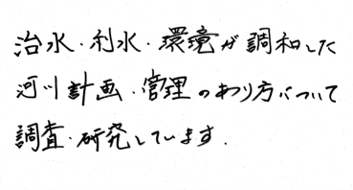 治水・利水・環境が調和した
河川計画・管理のあり方について
調査・研究しています.